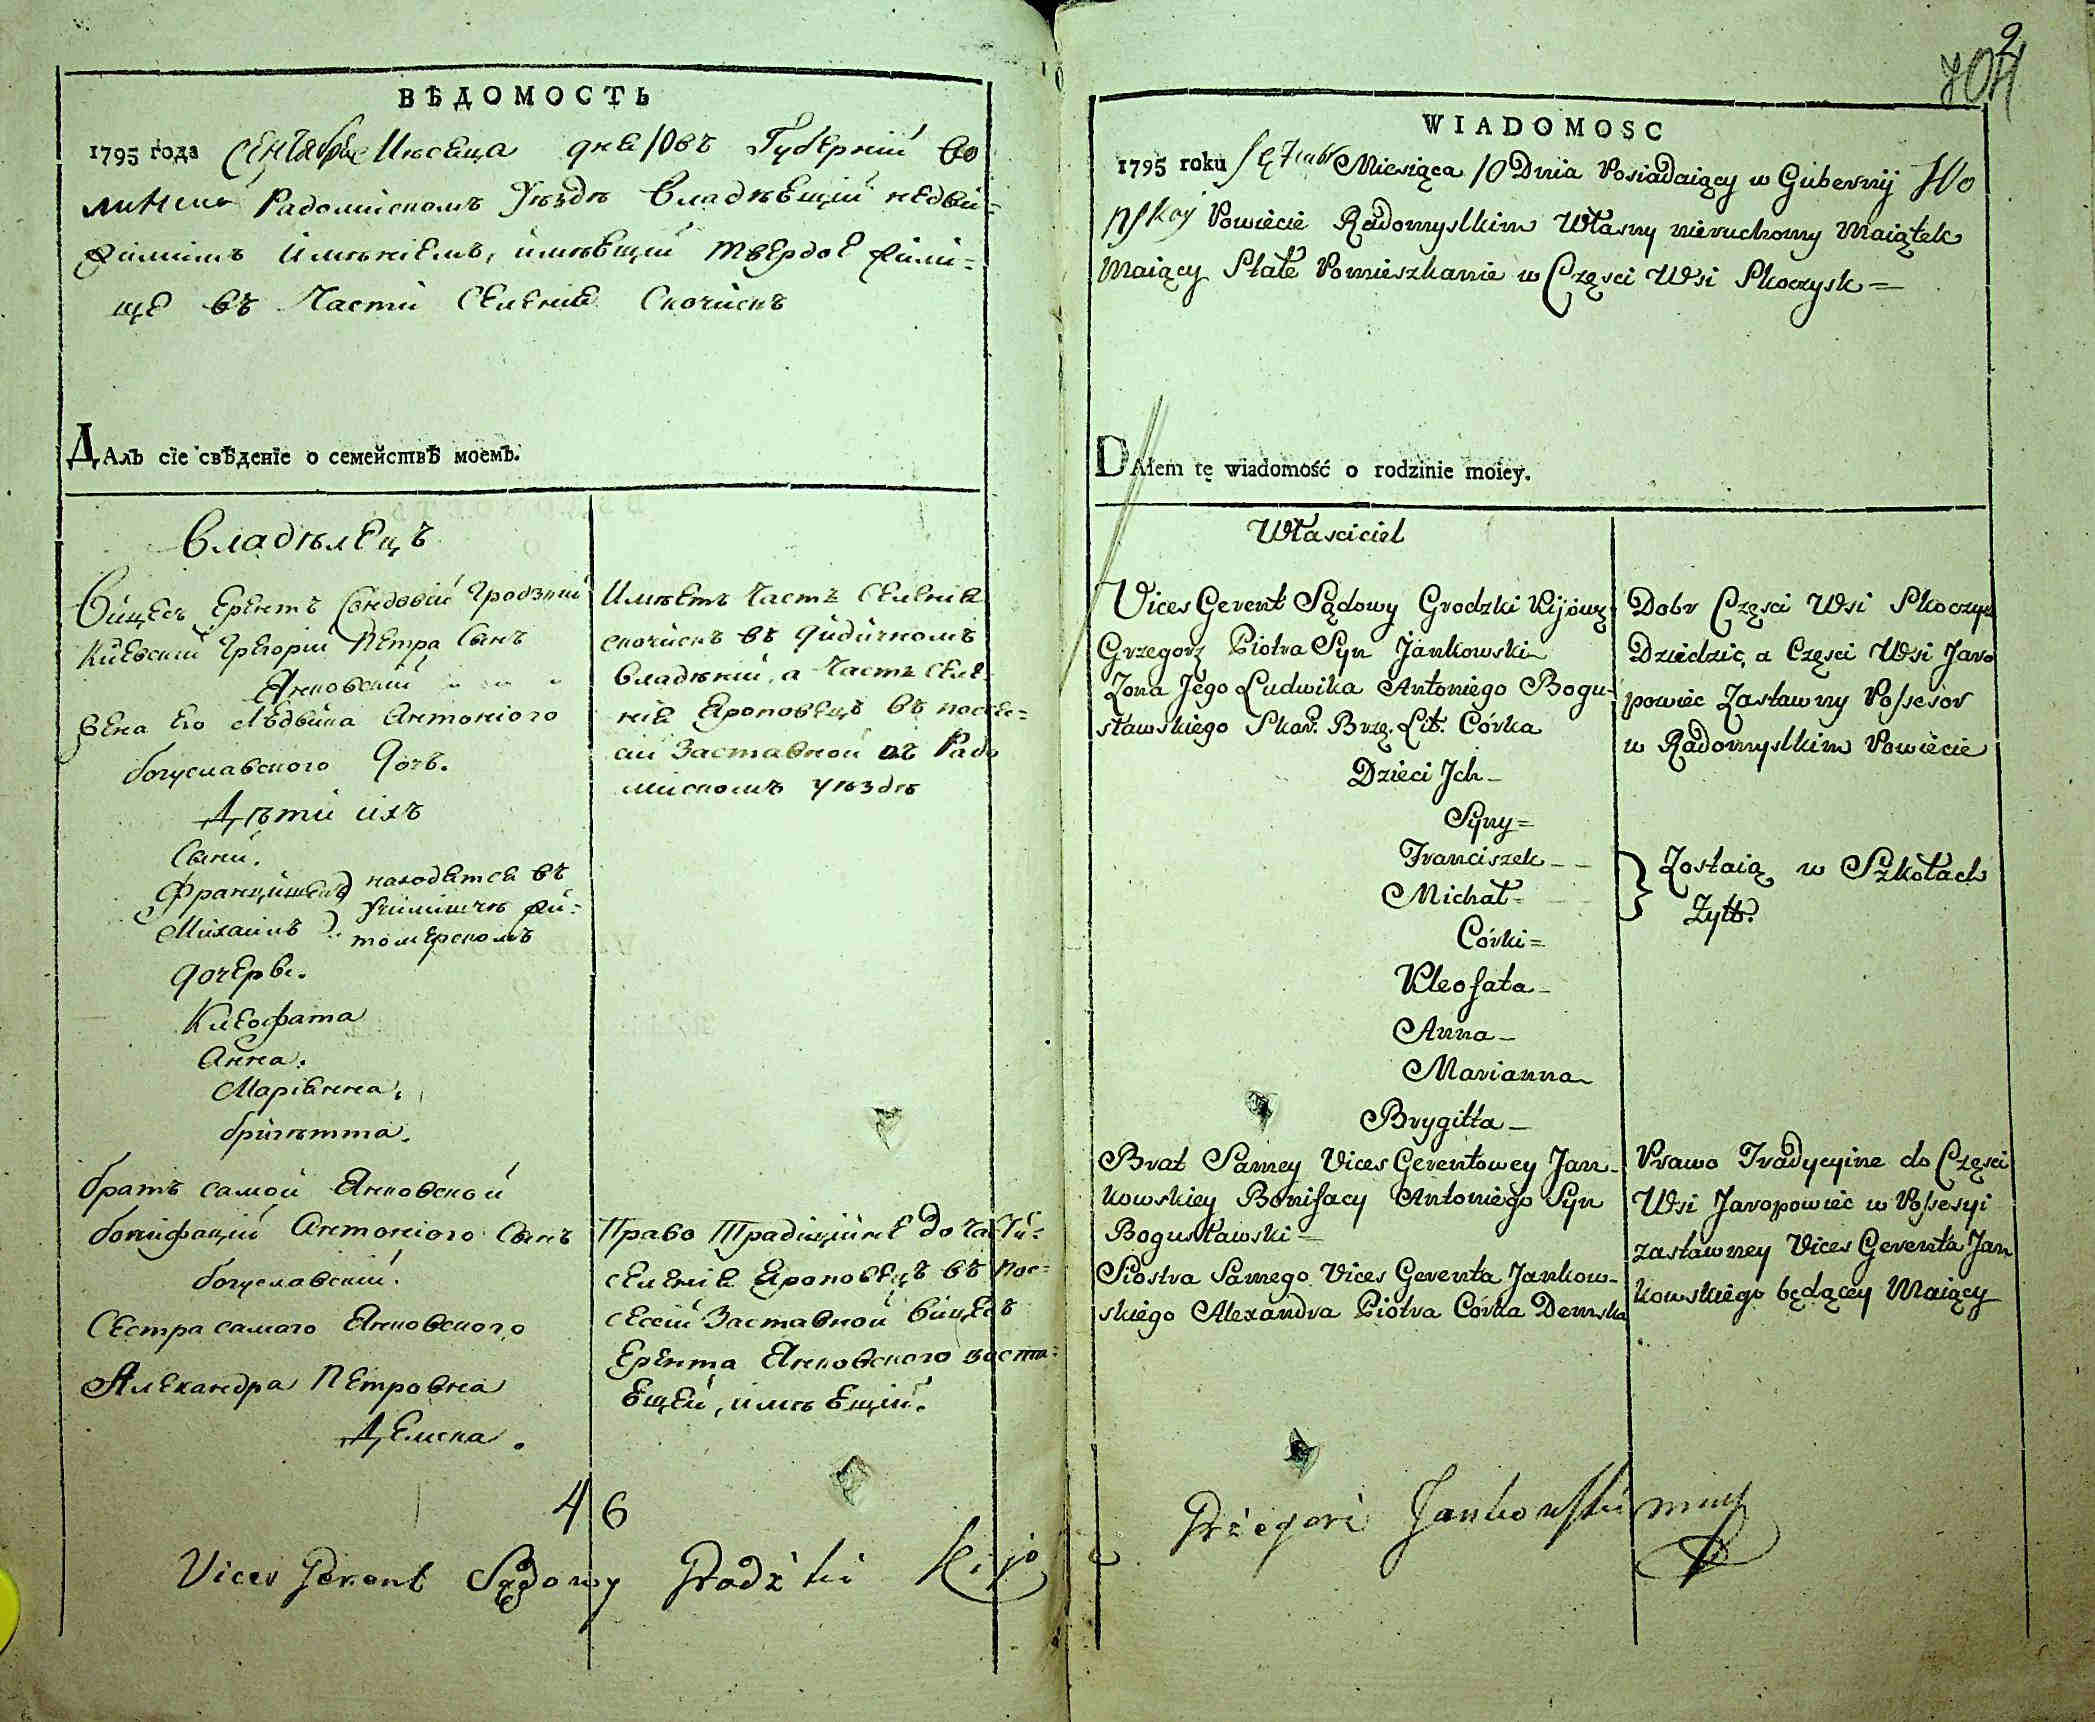 ВѢДОМОСТЬ
1795 года Сентября Мѣсяца дня 10 въ Губерніи Во
линской Радомискомъ Уѣздѣ Владѣещій недви=
жимимъ Имѣніемъ, имѣещій твердое жили=
ще въ Части Селенія Скочискъ
Далъ сїе свѣденїе о семействѣ моемъ.
Владѣлецъ
Вицесъ Ерентъ Сондовій Гродзкій
Киевскій Грегорій Петра Сынъ
Янковскій
Жена Его Людвика Антоніого
богуславского Дочь.
Дѣти ихъ
Сыни.
Францишекъ находятся въ
Михаилъ Училищѣ жи=
томерскомъ
дочерве.
Клеофата
Анна.
Маріянна.
бригѣтта.
братъ самой Янковской
бонифацій Антоніого Сынъ
богуславскій.
Сестра самого Янковского
Александра Петровна
Демска.
Имѣетъ Часть Селенія
скочискъ въ дидичномъ
владѣніи, а Часть Селе
нія Яроповецъ въ посе=
сіи Заставной въ Радо
мискомъ уѣздѣ
Право Традиційне до Части=
селенія Яроповецъ въ пос=
сесіи Заставной Вицесъ
Ерента Янковского заста=
ещей, имѣещій.
46
Vices Gerent Sądowy Grodzki Kijo
9
704
WIADOMOSC
1795 roku Septembr Miesiąca 10 Dnia Posiadaiący w Gubernij Wo
lynskoy Powiecie Radomyslkim Własny nieruchomy Maiątek
Maiący Stałe Pomieszkanie w Częsci Wsi Skoczysk=
DAłem tę wiadomość o rodzinie moiey.
Własciciel
Vices Gerent Sądowy Grodzki Kijow:
Grzegorz Piotra Syn Jankowski
Zona Jego Ludwika Antoniego Bogu-
sławskiego Skar. Brzę. Lit. Córka
Dzieci Jch-
Syny=
Franciszek--
Michał=
Córki=
Kleofata-
Anna-
Marianna-
Brygitta-
Brat Samey Vices Gerentowey Jan-
kowskiey Bonifacy Antoniego Syn
Bogusławski=
Siostra Samego Vices Gerenta Jankow-
skiego Alexandra Piotra Córka Demska
Dobr Częsci Wsi Skoczysk
Dziedzic, a Częsci Wsi Jaro
powiec Zastawny Possesor
w Radomyslkim Powiecie
Zostaią w Szkołach
Zytt.
Prawo Tradycyine do Częsci
Wsi Jaropowiec w Possesyi
zastawney Vices Gerenta Jan
kowskiego będącey Maiący
Grzegorz Jankowski mpp